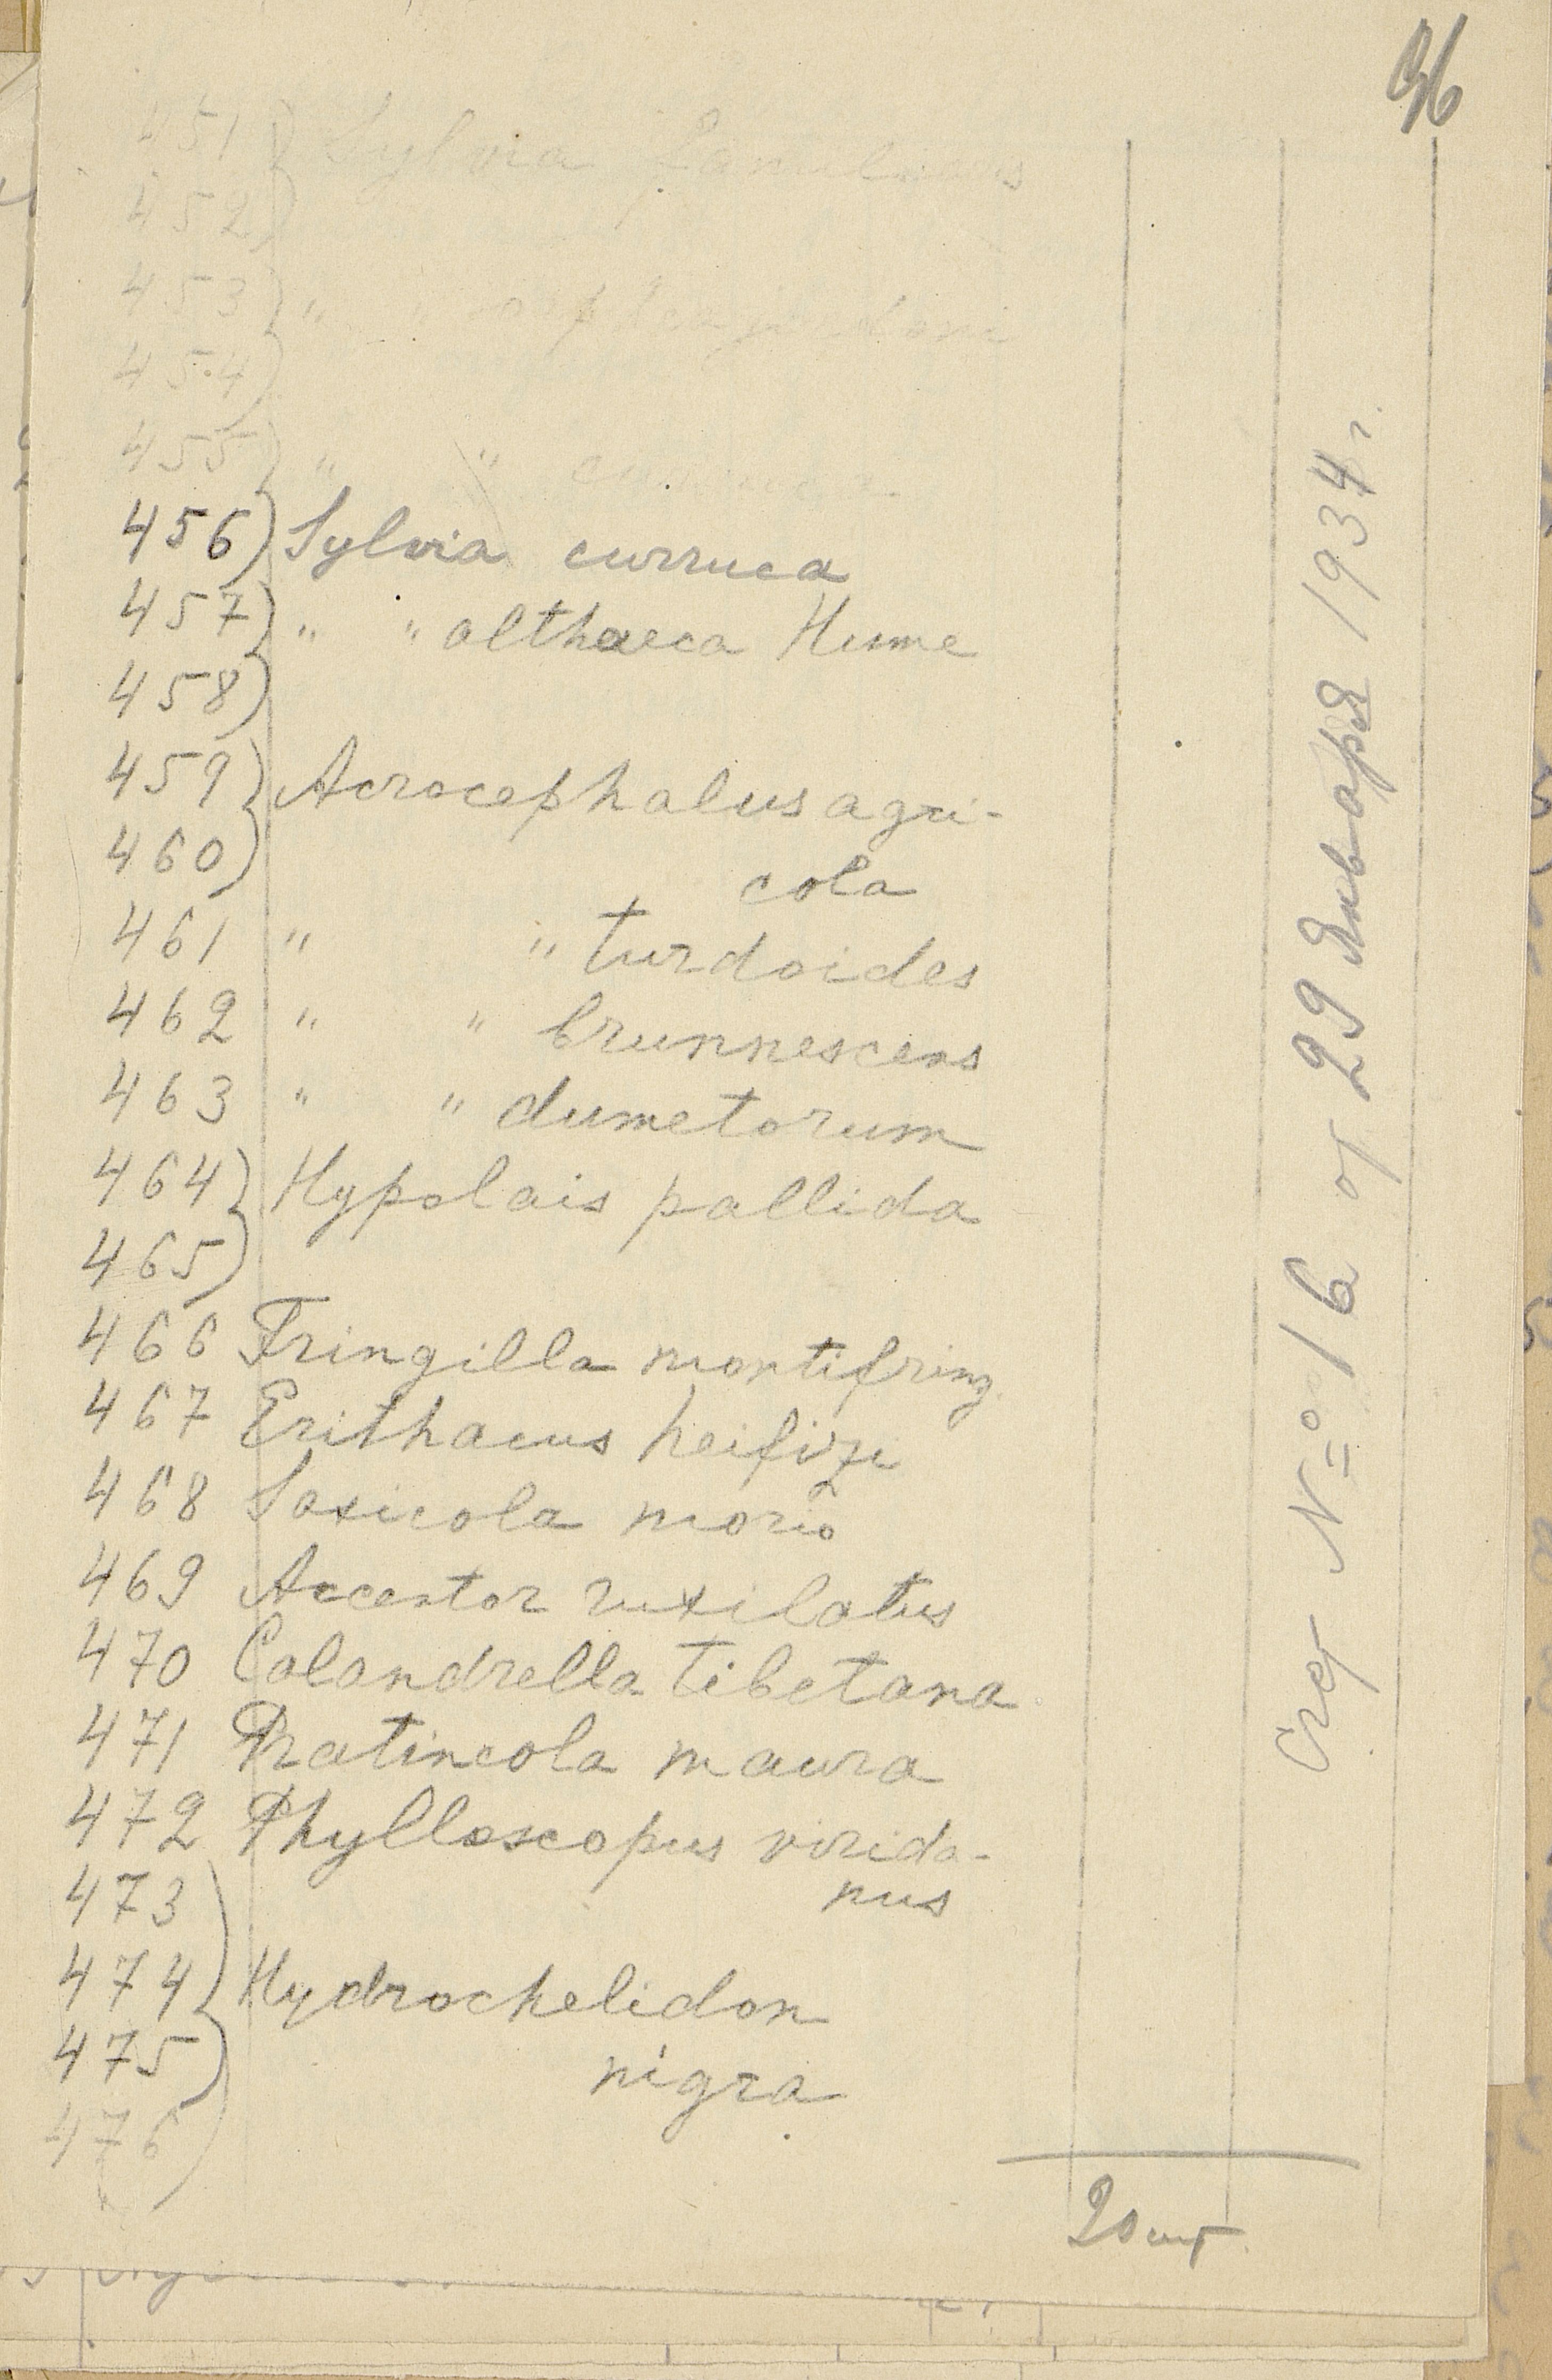 96
451) Sylvia
452)
453) " "
454)
455) " "
456) Sylvia curruca
457) " " althaeca Hume
458)
459) Acrocephalus agri-
460) cola
461 " " turdoides
462 " " brunnescens
463 " " dumetorum
464) Hypolais pallida
465)
466 Fringilla montifring.
467 Erithacus
468 Saxicola morio
469 Accentor rutilatus
470 Calandrella tibetana
471 Pratincola maura
472 Phylloscopus virida-
473 nus
474) Hydrochelidon
475) nigra
476)
20 шт
Счет № 16 от 29 Января 1934 г.